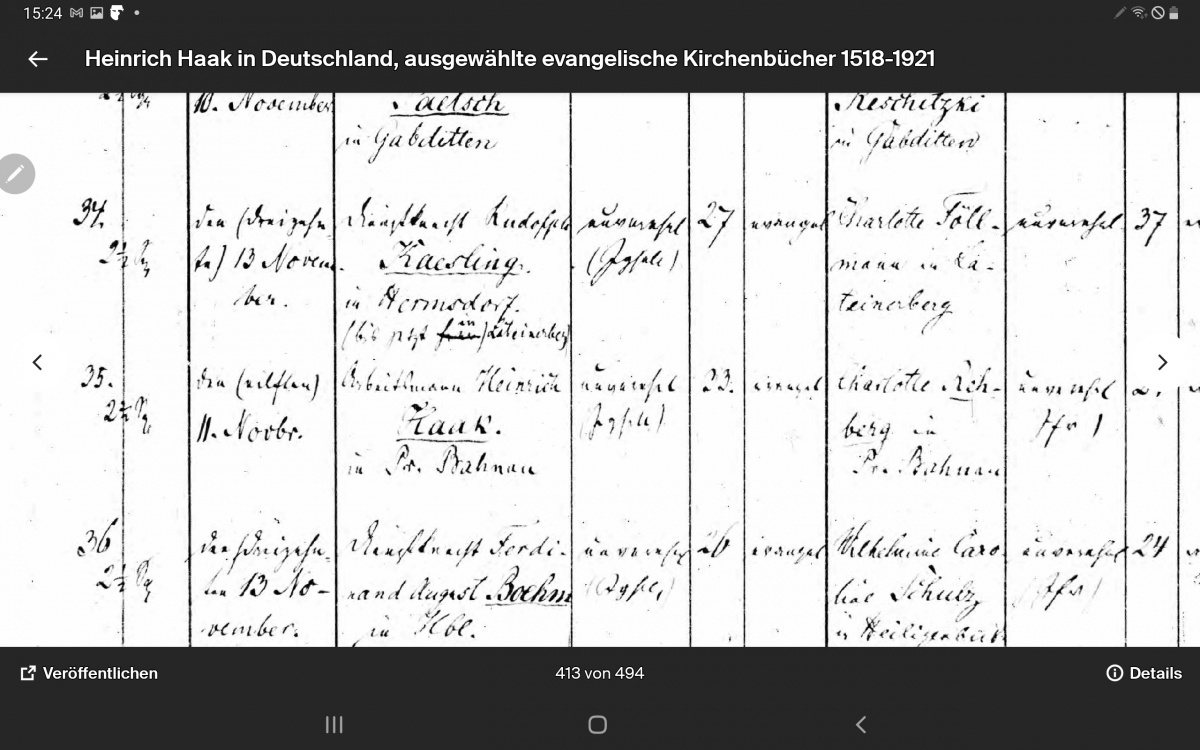 15:24
Heinrich Haak in Deutschland, ausgewählte evangelische Kirchenbücher 1518-1921
10. November
in Gabditten
Reschitzki
in Gabditten
34.
den (dreizehn-
te) 13 Novem-
ber.
Dienstknecht Rudolph
Kaesling.
in Hermsdorf.
(bis jetzt in Lateinerberg)
unverehel
(Jgsele)
27
evangel
Charlotte Föll-
mann in La-
teinerberg
unverehel.
37
35.
den (eilften)
11. Novbr.
Arbeitsmann Heinrich
Haak.
in Pr. Bahnau
unverehel
23.
evangel
Charlotte Reh-
berg in
Pr. Bahnau
unverehel
Jfr)
36
den (dreizehn-
ten 13 No-
vember.
Dienstknecht Ferdi-
nand August Boehm
in Hbl.
unverehel
26
evangel
Wilhelmine Caro-
line Schulz
in Heiligenbeil
unverehel
(Jfr)
24
Veröffentlichen
413 von 494
Details